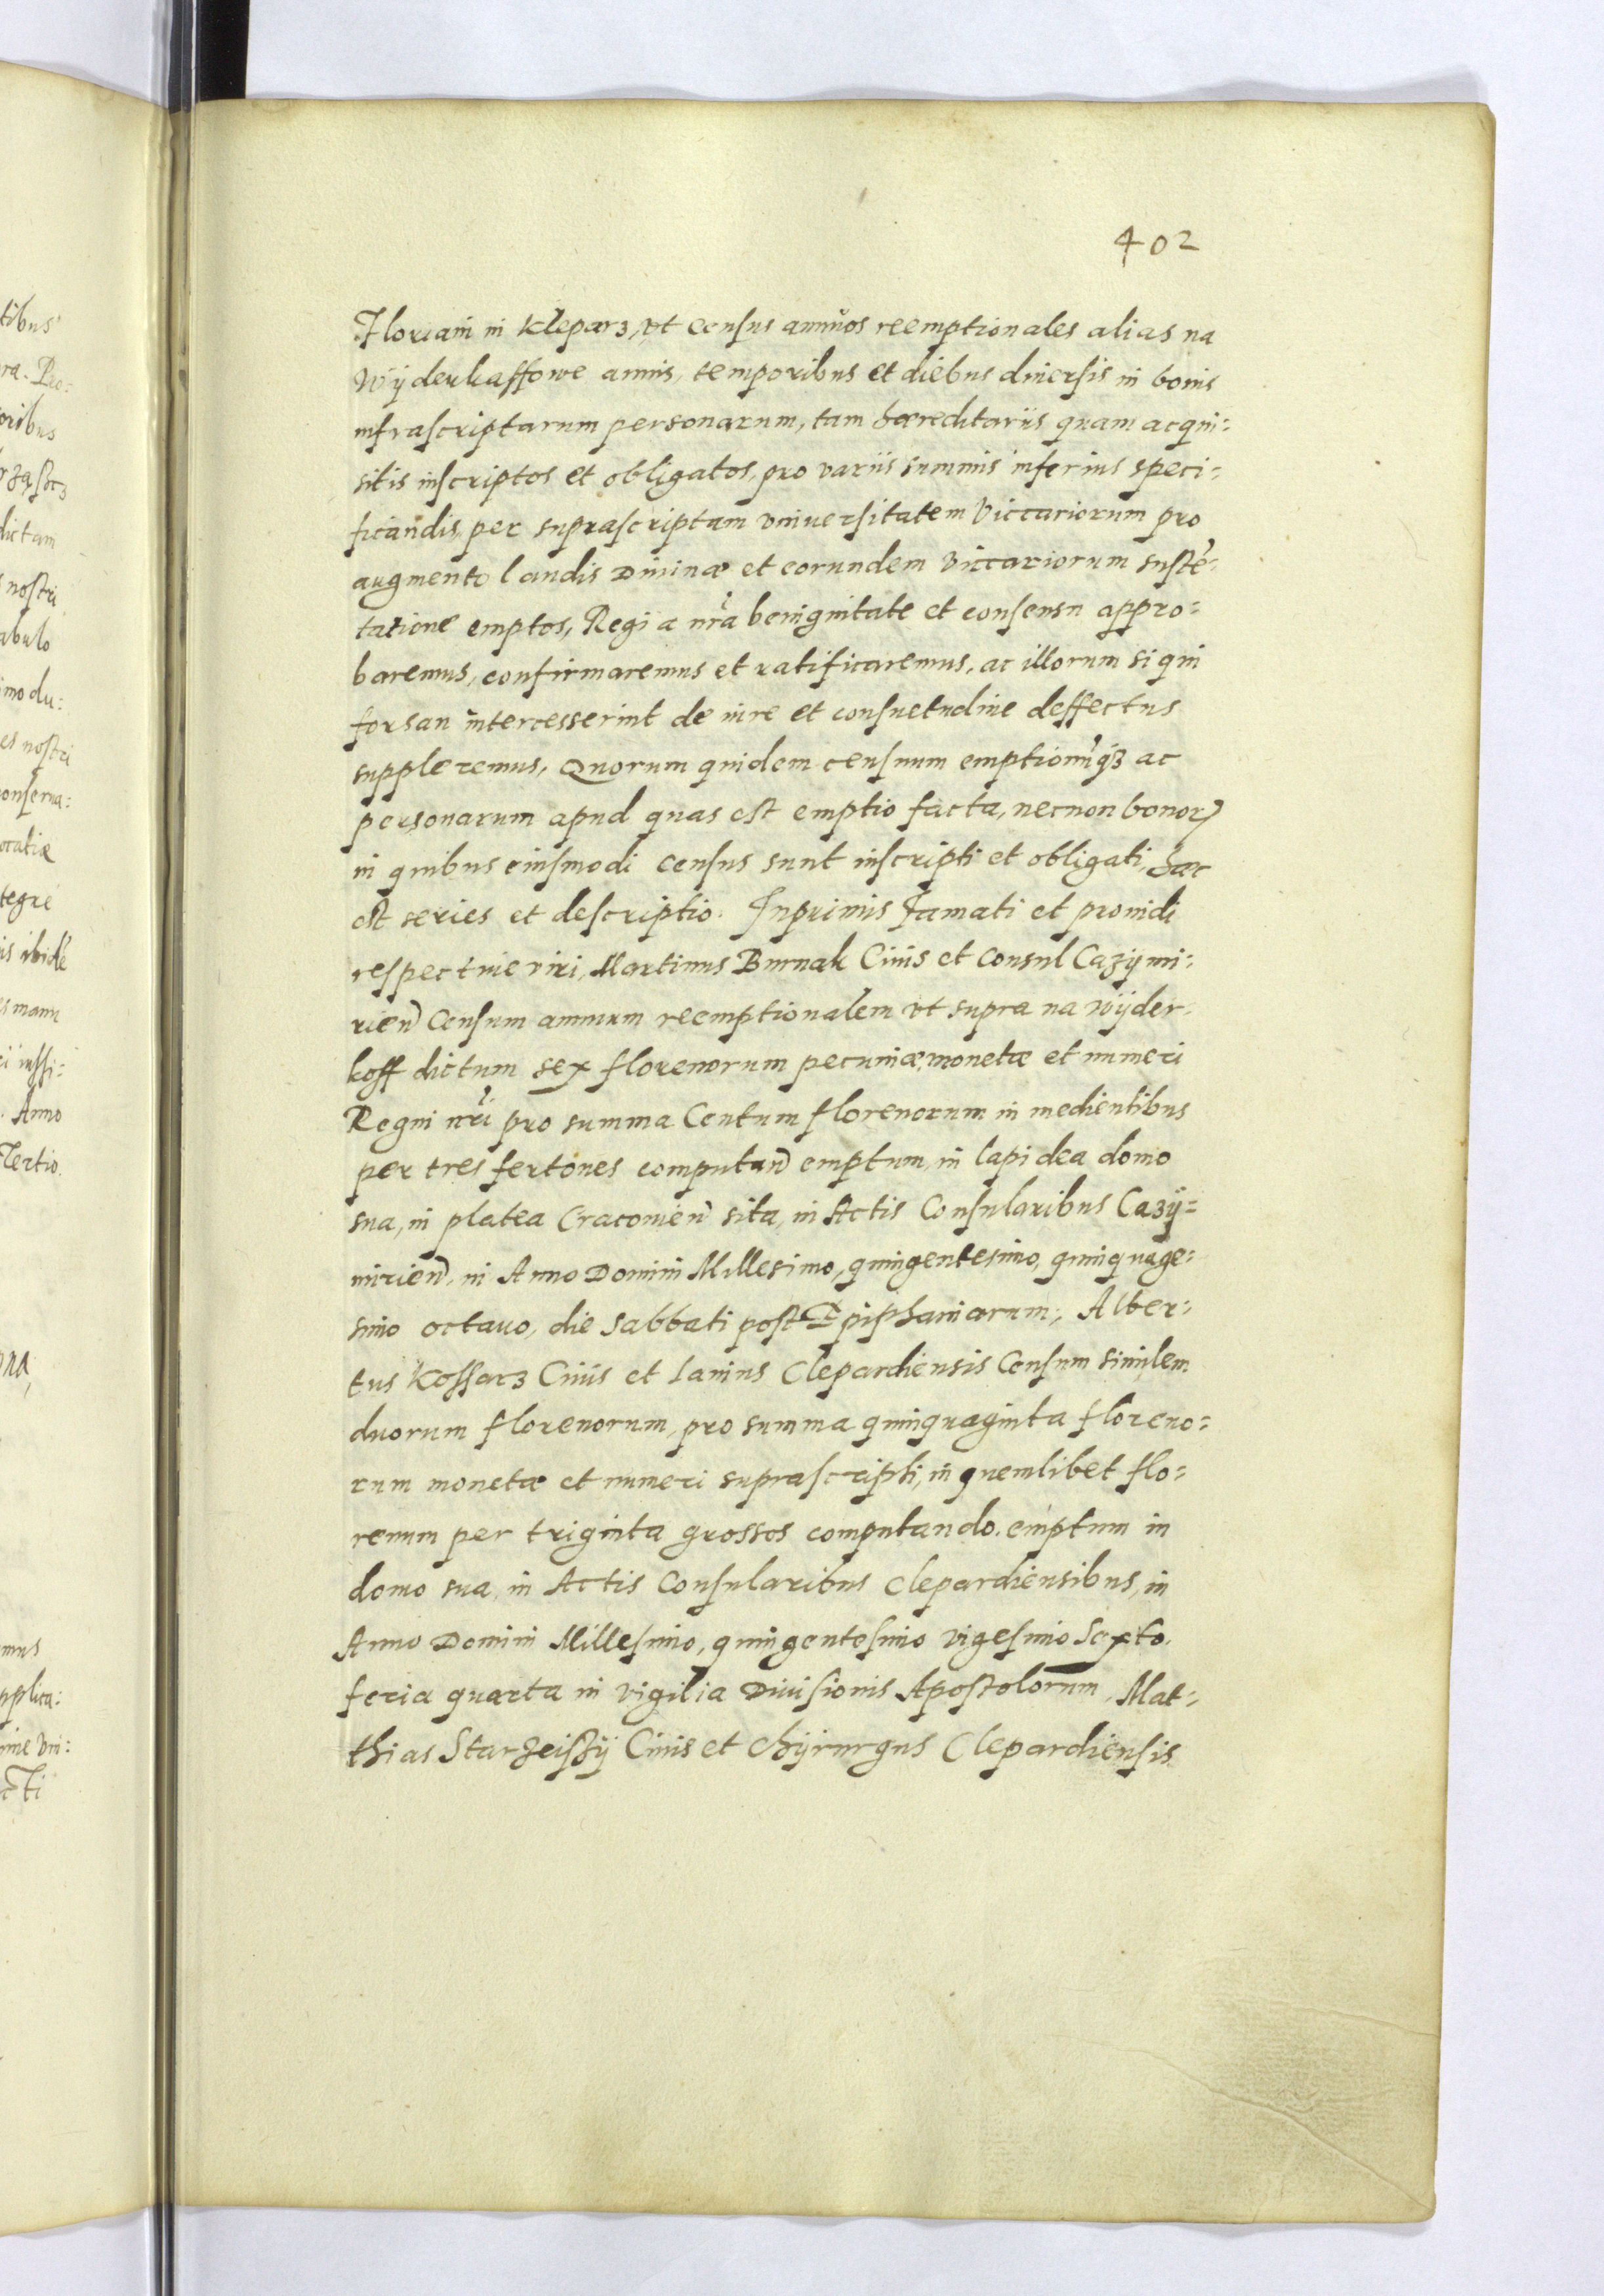 402
Floriani in Kleparz, vt census annuos reemptionales alias na
Wÿderkaffowe annis, temporibus et diebus diuersis in bonis
infrascriptarum personarum, tam hæreditariis quam acqui:
sitis inscriptos et obligatos, pro variis summis inferius speci:
ficandis, per suprascriptam vniuersitatem Viccariorum pro
augmento laudis Diuinæ et eorundem viccariorum sustē:
tatione emptos, Regia nrā benignitate et consensu appro:
baremus, confirmaremus et ratificaremus, ac illorum si qui
forsan intercesserint de iure et consuetudine deffectus
suppleremus, Quorum quidem censuum emptionūqȝ ac
personarum apud quas est emptio facta, necnon bonorꝝ
in quibus eiusmodi census sunt inscripti et obligati, hæc
est series et descriptio. Inprimis Famati et prouidi
respectiue viri, Martinus Burnak Ciuis et Consul Cazÿmi:
rieñ Censum annuum reemptionalem vt supra na wÿder:
koff dictum sex florenorum pecuniæ, monetæ et numeri
Regni nrī pro summa Centum florenorum in medientibus
per tres fertones computañ emptum, in lapidea domo
sua, in platea Cracouieñ sita, in Actis Consularibus Cazÿ=
mirieñ, in Anno Domini Millesimo, quingentesimo, quinquage:
simo octauo, die Sabbati post Epiphaniarum, Alber:
tus Kossarz Ciuis et Lanius Clepardiensis Censum similem
duorum florenorum, pro summa quinquaginta floreno:
rum monetæ et numeri suprascripti, in quemlibet flo:
renum per triginta grossos computando, emptum in
domo sua, in Actis Consularibus Clepardiensibus, in
Anno Domini Millesimo, quingentesimo vigesimo Sexto,
feria quarta in vigilia Diuisionis Apostolorum, Mat:
thias Ciuis et Chÿrurgus Clepardiensis